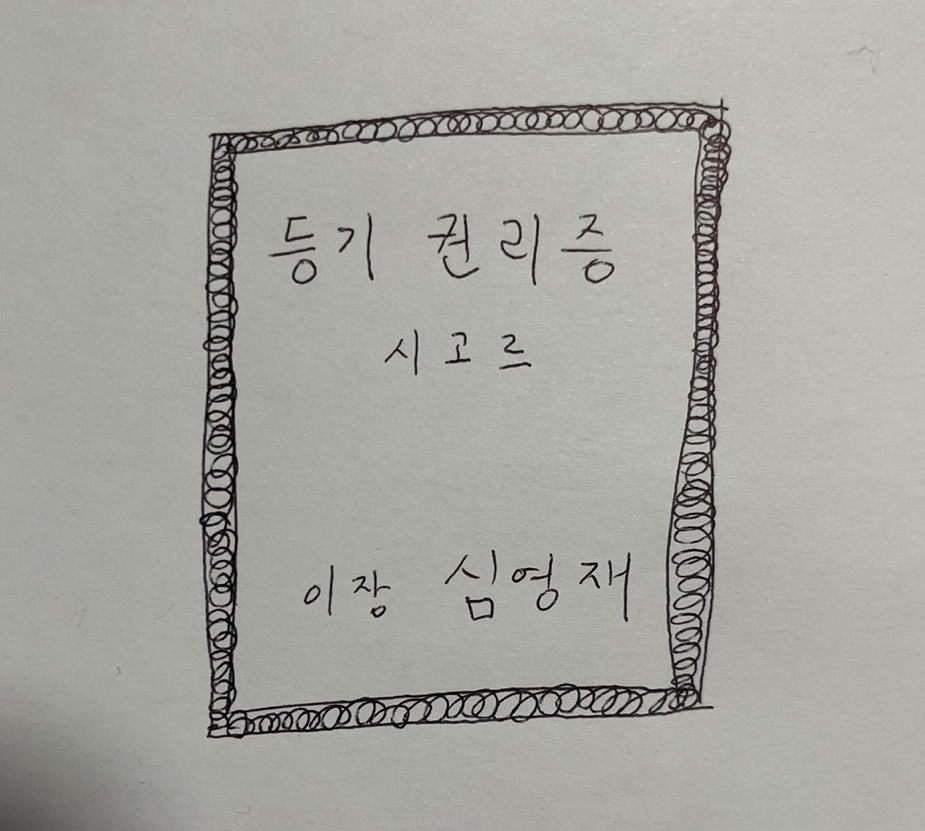 등기 권리증
시고르
이장 심영재